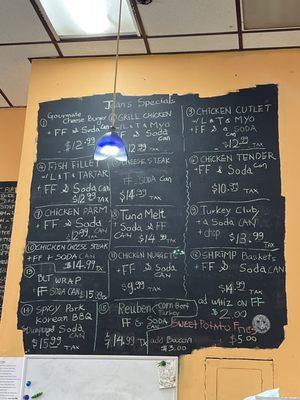 Juan's Specials
① Gourmate Cheese Burger
+ FF + Soda CAN
$12.99 TAX
② GRILL CHICKEN
W/ L & T & MYO
+ FF & Soda CAN
$12.99 TAX
③ CHICKEN CUTLET
W/ L & T & MYO
+ FF & a SODA CAN
$12.99 TAX
④ FISH FILLET
W/ L & T & TARTAR
+ FF & Soda CAN
$12.99 TAX
CHEESE STEAK
FF + SODA CAN
$14.99 TAX
⑥ CHICKEN TENDER
+ FF & Soda CAN
$10.99 TAX
⑦ CHICKEN PARM
+ FF & Soda CAN
$12.99 TAX
⑧ Tuna Melt
+ FF & Soda CAN
$14.99 TAX
⑨ Turkey Club
+ a Soda CAN
+ chip
$13.99 TAX
⑩ CHICKEN CHEESE STEAK
+ FF + SODA CAN
$14.99 TAX
CHICKEN NUGGET
+ FF & SODA CAN
$9.99 TAX
⑫ SHRIMP Baskets
+ FF & Soda CAN
$14.99 TAX
⑬ BLT WRAP
FF & Soda CAN
$15.99
⑭ Spicy Pork
Korean BBQ
Soda CAN
$15.99 TAX
⑮ Reuben Corn Beef Turkey
FF & Soda CAN
$14.99 TAX
add Bacon
$3.00
add WHIZ on FF
$2.00
SWEET POTATO Fries
$5.00